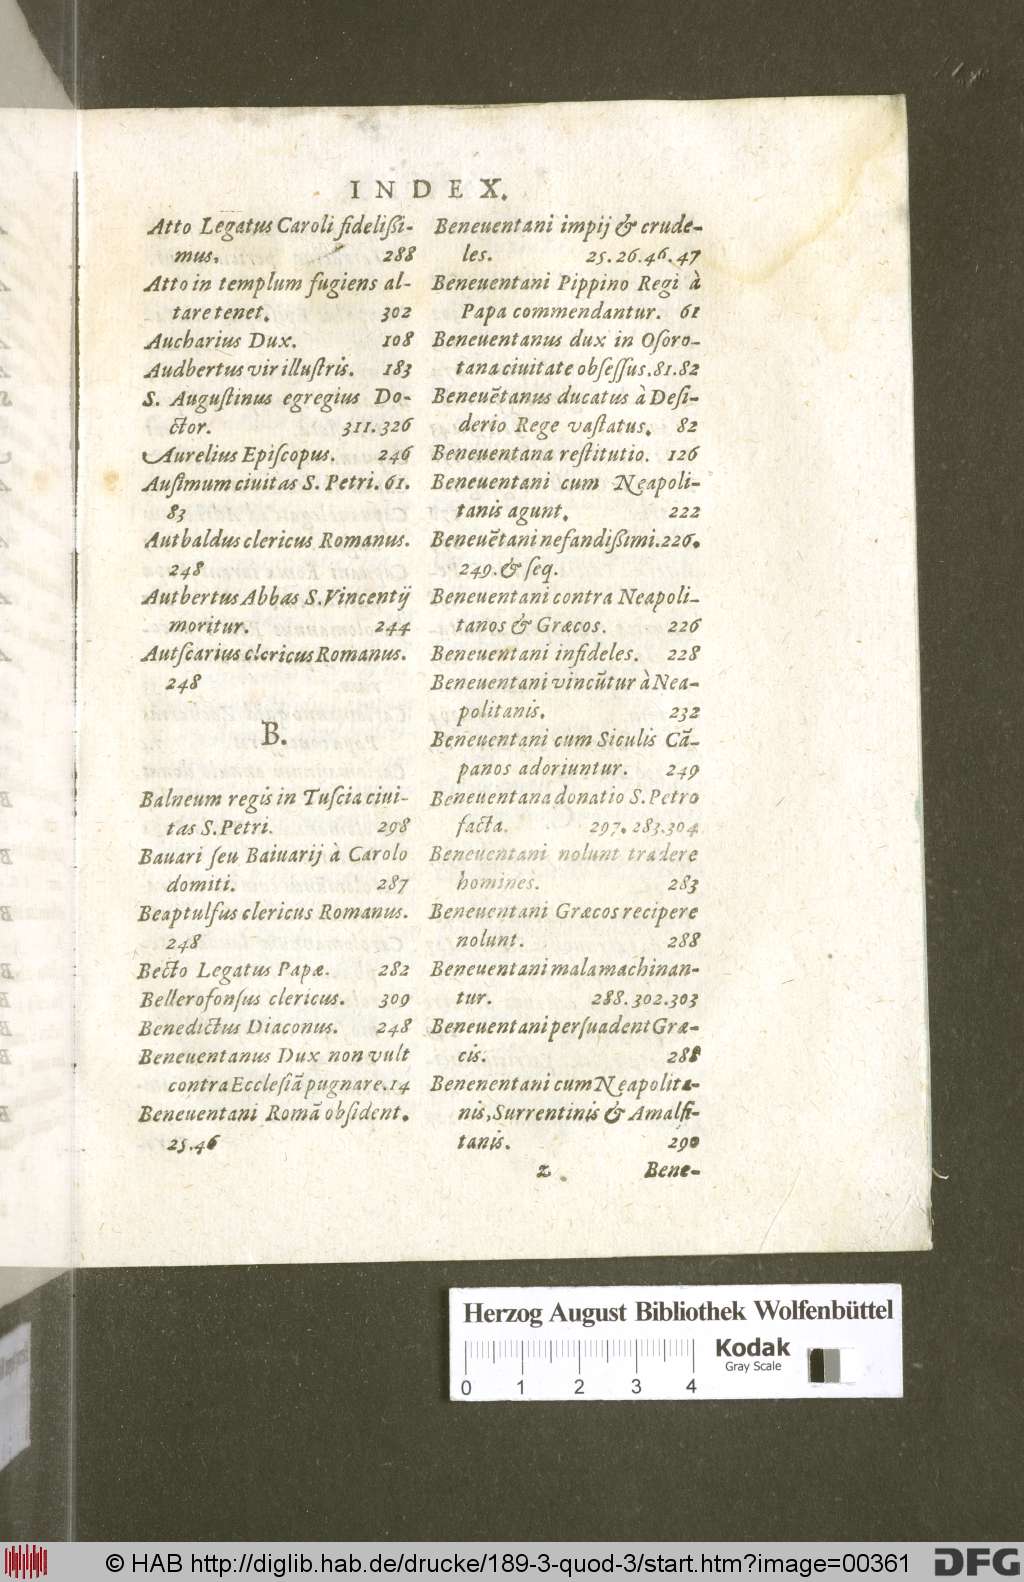 INDEX.
Atto Legatus Caroli fidelißi-
mus. 288
Atto in templum fugiens al-
tare tenet. 302
Aucharius Dux. 108
Audbertus vir illuſtris. 183
S. Auguſtinus egregius Do-
ctor. 311.326
Aurelius Epiſcopus. 246
Auſimum ciuitas S. Petri. 61.
83
Autbaldus clericus Romanus.
248
Autbertus Abbas S. Vincentij
moritur. 244
Autſcarius clericus Romanus.
248
B.
Balneum regis in Tuſcia ciui-
tas S. Petri. 298
Bauari ſeu Baiuarij à Carolo
domiti. 287
Beaptulfus clericus Romanus.
248
Becto Legatus Papæ. 282
Bellerofonſus clericus. 309
Benedictus Diaconus. 248
Beneuentanus Dux non vult
contra Eccleſiā pugnare. 14
Beneuentani Romā obſident.
25.46
Beneuentani impij & crude-
les. 25.26.46.47
Beneuentani Pippino Regi à
Papa commendantur. 61
Beneuentanus dux in Oſoro-
tana ciuitate obſeſſus. 81.82
Beneuētanus ducatus à Deſi-
derio Rege vaſtatus. 82
Beneuentana reſtitutio. 126
Beneuentani cum Neapoli-
tanis agunt. 222
Beneuētani nefandißimi. 226.
249. & ſeq.
Beneuentani contra Neapoli-
tanos & Græcos. 226
Beneuentani infideles. 228
Beneuentani vincūtur à Nea-
politanis. 232
Beneuentani cum Siculis Cā-
panos adoriuntur. 249
Beneuentana donatio S. Petro
facta. 297.283.304
Beneuentani nolunt tradere
homines. 283
Beneuentani Græcos recipere
nolunt. 288
Beneuentani mala machinan-
tur. 288.302.303
Beneuentani perſuadent Græ-
cis. 288
Benenentani cum Neapolita-
nis, Surrentinis & Amalfi-
tanis. 290
z Bene-
Herzog August Bibliothek Wolfenbüttel
Kodak
Gray Scale
0 1 2 3 4
© HAB http://diglib.hab.de/drucke/189-3-quod-3/start.htm?image=00361
DFG